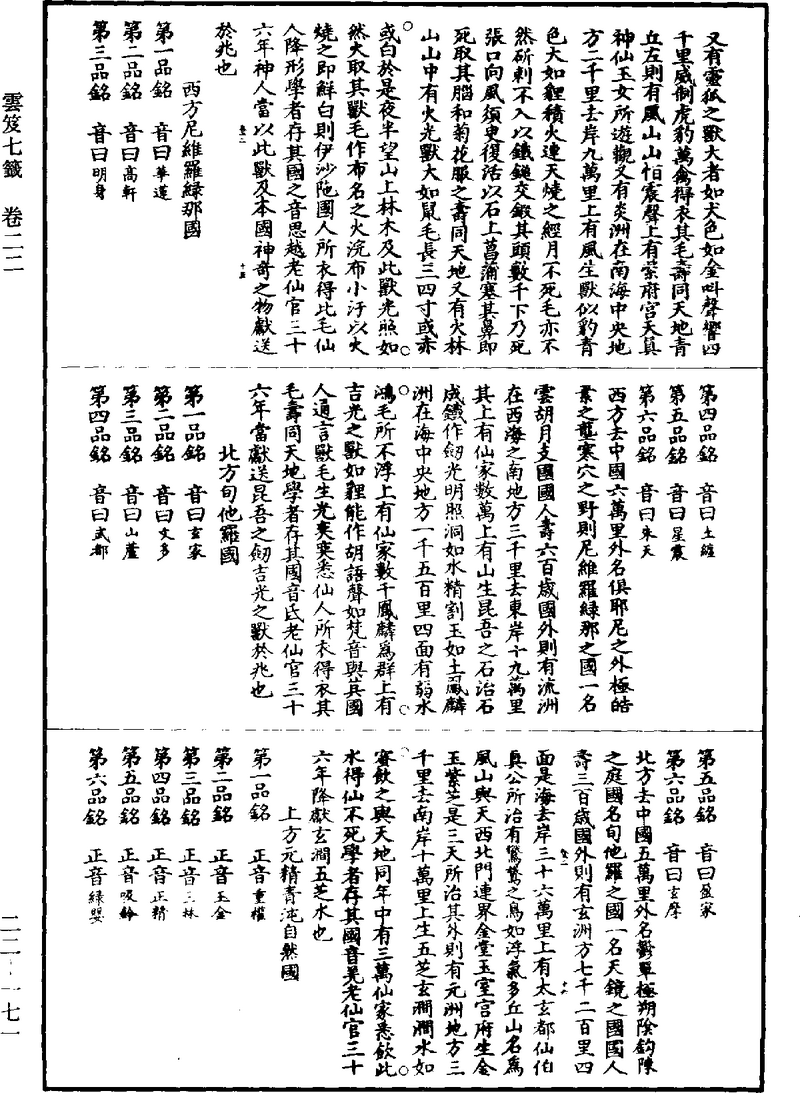 又有靈狐之獸大者如犬色如金叫聲響四
千里威制虎豹萬禽得衣其毛壽同天地青
丘左則有風山山怕震聲上有紫府宮天真
神仙玉女所遊觀又有炎洲在南海中央地
方二千里去岸九萬里上有風生獸似豹青
色大如貍積火連天燒之經月不死毛亦不
然斫刺不入以鐵鎚交鍛其頭數千下乃死
張口向風須臾復活以石上菖蒲塞其鼻即
死取其腦和菊花服之壽同天地又有火林
山山中有火光獸大如鼠毛長三四寸或赤
或白於是夜半望山上林木及此獸光照如
然火取其獸毛作布名之火浣布小汙以火
燒之即鮮白則伊沙陁國人所衣得此毛仙
人降形學者存其國之音思越老仙官三十
六年神人當以此獸及本國神奇之物獻送
於兆也
西方尼維羅綠那國
第一品銘 音曰華蓮
第二品銘 音曰高軒
第三品銘 音曰明身
第四品銘 音曰土纏
第五品銘 音曰星震
第六品銘 音曰朱天
西方去中國六萬里外名俱耶尼之外極皓
素之壟寒穴之野則尼維羅綠那之國一名
雲胡月支國國人壽六百歲國外則有流洲
在西海之南地方三千里去東岸十九萬里
其上有仙家數萬上有山生昆吾之石治石
成鐵作劒光明照洞如水精割玉如土鳳麟
洲在海中央地方一千五百里四面有弱水
鴻毛所不浮上有仙家數千鳳麟為群上有
吉光之獸如貍能作胡語聲如梵音與其國
人通言獸毛生光奕奕悉仙人所衣得衣其
毛壽同天地學者存其國音氐老仙官三十
六年當獻送昆吾之劒吉光之獸於兆也
北方旬他羅國
第一品銘 音曰玄家
第二品銘 音曰文多
第三品銘 音曰山蘆
第四品銘 音曰武都
第五品銘 音曰盈家
第六品銘 音曰玄摩
北方去中國五萬里外名欝單極朔陰鈎陳
之庭國名旬他羅之國一名天鏡之國國人
壽三百歲國外則有玄洲方七千二百里四
面是海去岸三十六萬里上有太玄都仙伯
真公所治有鷔鷔之鳥如浮氣多丘山名為
風山與天西北門連界金堂玉室宮府生金
玉紫芝是三天所治其外則有元洲地方三
千里去南岸十萬里上生五芝玄澗澗水如
蜜飲之與天地同年中有三萬仙家悉飲此
水得仙不死學者存其國音晃老仙官三十
六年降獻玄澗五芝水也
上方元精青沌自然國
第一品銘 正音重櫂
第二品銘 正音玉金
第三品銘 正音三林
第四品銘 正音正精
第五品銘 正音吸齡
第六品銘 正音綠嬰
雲笈七籤 卷二二
二二-一七一